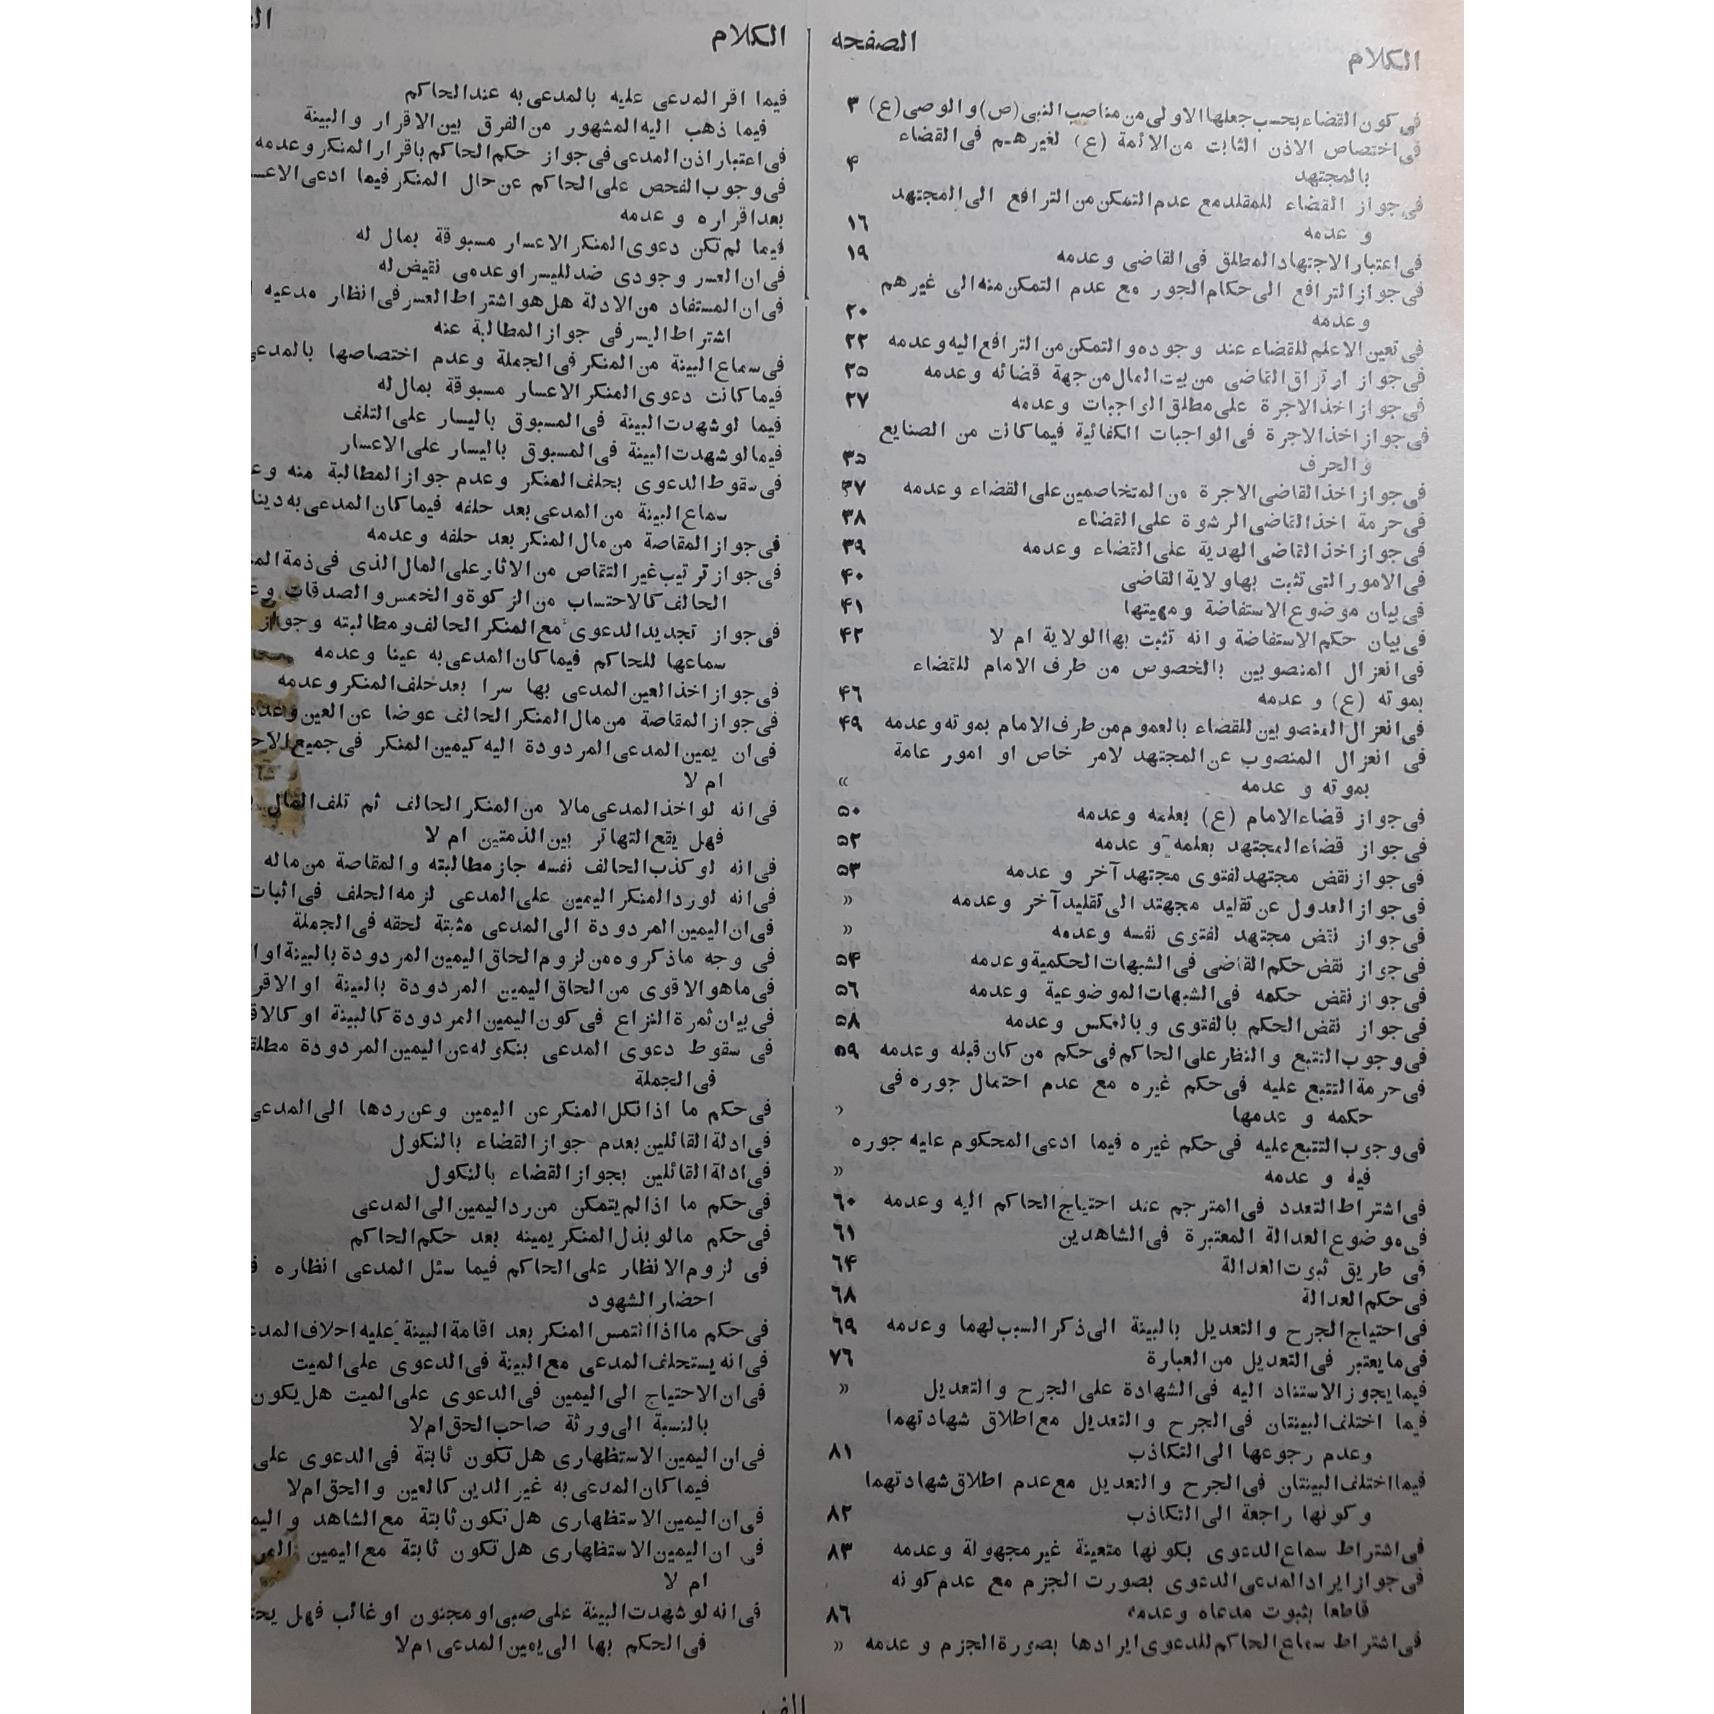 الكلام
الصفحه
فى كون القضاء بحسب جعلها الاولى من مناصب النبى (ص) و الوصى (ع) ٣
فى اختصاص الاذن الثابت من الائمة (ع) لغيرهم فى القضاء
بالمجتهد ۴
فى جواز القضاء للمقلد مع عدم التمكن من الترافع الى المجتهد
و عدمه ١٦
فى اعتبار الاجتهاد المطلق فى القاضى و عدمه ١٩
فى جواز الترافع الى حكام الجور مع عدم التمكن منه الى غيرهم
و عدمه ٢٠
فى تعين الاعلم للقضاء عند وجوده و التمكن من الترافع اليه و عدمه ٢٢
فى جواز ارتزاق القاضى من بيت المال من جهة قضائه و عدمه ٢۵
فى جواز اخذ الاجرة على مطلق الواجبات و عدمه ٢٧
فى جواز اخذ الاجرة فى الواجبات الكفائية فيما كانت من الصنايع
و الحرف ٣۵
فى جواز اخذ القاضى الاجرة من المتخاصمين على القضاء و عدمه ٣٧
فى حرمة اخذ القاضى الرشوة على القضاء ٣٨
فى جواز اخذ القاضى الهدية على القضاء و عدمه ٣٩
فى الامور التى تثبت بها ولاية القاضى ۴٠
فى بيان موضوع الاستفاضة و مهيتها ۴١
فى بيان حكم الاستفاضة و انه تثبت بها الولاية ام لا ۴٢
فى انعزال المنصوبين بالخصوص من طرف الامام للقضاء
بموته (ع) و عدمه ۴٦
فى انعزال المنصوبين للقضاء بالعموم من طرف الامام بموته و عدمه ۴٩
فى انعزال المنصوب عن المجتهد لامر خاص او امور عامة
بموته و عدمه »
فى جواز قضاء الامام (ع) بعلمه و عدمه ۵٠
فى جواز قضاء المجتهد بعلمه و عدمه ۵٢
فى جواز نقض مجتهد لفتوى مجتهد آخر و عدمه ۵٣
فى جواز العدول عن تقليد مجهتد الى تقليد آخر و عدمه »
فى جواز نقض مجتهد لفتوى نفسه و عدمه »
فى جواز نقض حكم القاضى فى الشبهات الحكمية و عدمه ۵۴
فى جواز نقض حكمه فى الشبهات الموضوعية و عدمه ۵٦
فى جواز نقض الحكم بالفتوى و بالعكس و عدمه ۵٨
فى وجوب التتبع و النظر على الحاكم فى حكم من كان قبله و عدمه ۵٩
فى حرمة التتبع عليه فى حكم غيره مع عدم احتمال جوره فى
حكمه و عدمها »
فى وجوب التتبع عليه فى حكم غيره فيما ادعى المحكوم عليه جوره
فيه و عدمه »
فى اشتراط التعدد فى المترجم عند احتياج الحاكم اليه و عدمه ٦٠
فى موضوع العدالة المعتبرة فى الشاهدين ٦١
فى طريق ثبوت العدالة ٦۴
فى حكم العدالة ٦٨
فى احتياج الجرح و التعديل بالبينة الى ذكر السبب لهما و عدمه ٦٩
فى ما يعتبر فى التعديل من العبارة ٧٦
فيما يجوز الاستناد اليه فى الشهادة على الجرح و التعديل »
فيما اختلف البينتان فى الجرح و التعديل مع اطلاق شهادتهما
و عدم رجوعها الى التكاذب ٨١
فيما اختلف البينتان فى الجرح و التعديل مع عدم اطلاق شهادتهما
و كونها راجعة الى التكاذب ٨٢
فى اشتراط سماع الدعوى بكونها متعينة غير مجهولة و عدمه ٨٣
فى جواز ايراد المدعى الدعوى بصورت الجزم مع عدم كونه
قاطعا بثبوت مدعاه و عدمه ٨٦
فى اشتراط سماع الحاكم للدعوى ايرادها بصورة الجزم و عدمه »
الكلام
فيما اقر المدعى عليه بالمدعى به عند الحاكم
فيما ذهب اليه المشهور من الفرق بين الاقرار و البينة
فى اعتبار اذن المدعى فى جواز حكم الحاكم باقرار المنكر و عدمه
فى وجوب الفحص على الحاكم عن حال المنكر فيما ادعى
بعد اقراره و عدمه
فيما لم تكن دعوى المنكر الاعسار مسبوقة بمال له
فى ان العسر وجودى ضد لليسر او عدمى نقيض له
فى ان المستفاد من الادلة هل هو اشتراط العسر فى انظار مدعيه
اشتراط اليسر فى جواز المطالبة عنه
فى سماع البينة من المنكر فى الجملة و عدم اختصاصها بالمدعى
فيما كانت دعوى المنكر الاعسار مسبوقة بمال له
فيما لو شهدت البينة فى المسبوق باليسار على التلف
فيما لو شهدت البينة فى المسبوق باليسار على الاعسار
فى سقوط الدعوى بحلف المنكر و عدم جواز المطالبة منه
سماع البينة من المدعى بعد حلفه فيما كان المدعى به دينا
فى جواز المقاصة من مال المنكر بعد حلفه و عدمه
فى جواز ترتيب غير التقاص من الاثار على المال الذى فى ذمة
الحالف كالاحتساب من الزكوة و الخمس و الصدقات
فى جواز تجديد الدعوى مع المنكر الحالف و مطالبته و جواز
سماعها للحاكم فيما كان المدعى به عينا و عدمه
فى جواز اخذ العين المدعى بها سرا بعد حلف المنكر و عدمه
فى جواز المقاصة من مال المنكر الحالف عوضا عن العين
فى ان يمين المدعى المردودة اليه كيمين المنكر فى جميع
ام لا
فى انه لو اخذ المدعى مالا من المنكر الحالف ثم تلف المال
فهل يقع التهاتر بين الذمتين ام لا
فى انه لو كذب الحالف نفسه جاز مطالبته و المقاصة من ماله
فى انه لو رد المنكر اليمين على المدعى لزمه الحلف فى اثبات
فى ان اليمين المردودة الى المدعى مثبتة لحقه فى الجملة
فى وجه ما ذكروه من لزوم الحاق اليمين المردودة بالبينة
فى ما هو الاقوى من الحاق اليمين المردودة بالبينة او
فى بيان ثمرة النزاع فى كون اليمين المردودة كالبينة او
فى سقوط دعوى المدعى بنكوله عن اليمين المردودة
فى الجملة
فى حكم ما اذا نكل المنكر عن اليمين و عن ردها الى المدعى
فى ادلة القائلين بعدم جواز القضاء بالنكول
فى ادلة القائلين بجواز القضاء بالنكول
فى حكم ما اذا لم يتمكن من رد اليمين الى المدعى
فى حكم ما لو بذل المنكر يمينه بعد حكم الحاكم
فى لزوم الانظار على الحاكم فيما سئل المدعى انظاره
احضار الشهود
فى حكم ما اذا التمس المنكر بعد اقامة البينة عليه احلاف
فى انه يستحلف المدعى مع البينة فى الدعوى على الميت
فى ان الاحتياج الى اليمين فى الدعوى على الميت هل يكون
بالنسبة الى ورثة صاحب الحق ام لا
فى ان اليمين الاستظهارى هل تكون ثابتة فى الدعوى على
فيما كان المدعى به غير الدين كالعين و الحق ام لا
فى ان اليمين الاستظهارى هل تكون ثابتة مع الشاهد
فى ان اليمين الاستظهارى هل تكون ثابتة مع اليمين
ام لا
فى انه لو شهدت البينة على صبى او مجنون او غائب فهل
فى الحكم بها الى يمين المدعى ام لا